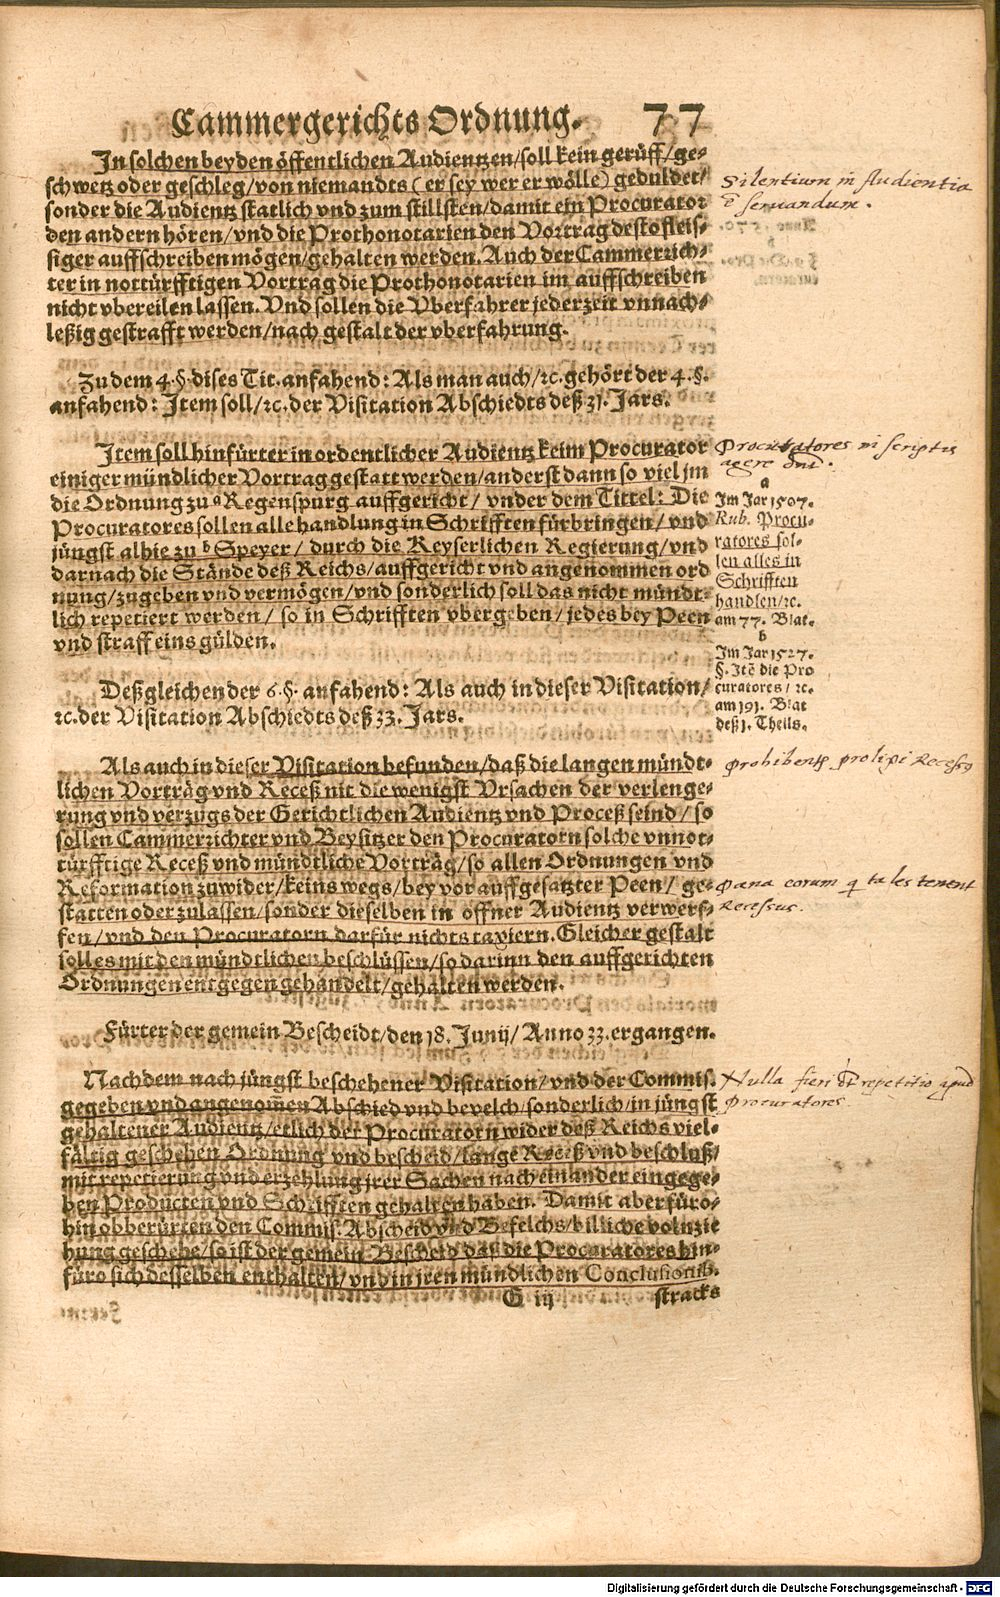 Cammergerichts Ordnung. 77
In solchen beyden öffentlichen Audientzen/soll kein gerüff/ge-
schwetz oder geschleg/von niemandts (er sey wer er wölle) geduldet/
sonder die Audientz statlich vnd zum stillsten/damit ein Procurator
den andern hören/vnd die Prothonotarien den Vortrag desto fleis-
siger auffschreiben mögen/gehalten werden. Auch der Cammerrich-
ter in nottürfftigen Vortrag die Prothonotarien im auffschreiben
nicht vbereilen lassen. Vnd sollen die Vberfahrer jederzeit vnnach-
leßig gestrafft werden/nach gestalt der vberfahrung.
Silentium in Audientia
ē seruandum.
Zu dem 4.§.dises Tit.anfahend: Als man auch/ꝛc.gehört der 4.§.
anfahend: Item soll/ꝛc.der Visitation Abschiedts deß 31. Jars.
Item soll hinfürter in ordentlicher Audientz keim Procurator
einiger mündlicher Vortrag gestatt werden/anderst dann so viel jm
die Ordnung zu a Regenspurg auffgericht/ vnder dem Tittel: Die
Procuratores sollen alle handlung in Schrifften fürbringen/ vnd
jüngst alhie zu b Speyer/ durch die Keyserlichen Regierung/vnd
darnach die Stände deß Reichs/auffgericht vnd angenommen ord
nung/zugeben vnd vermögen/vnd sonderlich soll das nicht mündt-
lich repetiert werden/ so in Schrifften vbergeben/ jedes bey Peen
vnd straff eins gülden.
Procuratores in scriptis
agere dnt.
a
Im Jar 1507.
Rub. Procu-
ratores sol-
len alles in
Schrifften
handlen/ꝛc.
am 77. Blat.
b
Im Jar 1527.
§. Itē die Pro
curatores/ ꝛc.
am 191. Blat
deß 1. Theils.
Deßgleichen der 6.§. anfahend: Als auch in dieser Visitation/
ꝛc.der Visitation Abschiedts deß 33. Jars.
Als auch in dieser Visitation befunden/daß die langen mündt-
lichen Vorträg vnd Receß nit die wenigst Vrsachen der verlenge-
rung vnd verzugs der Gerichtlichen Audientz vnd Proceß seind/ so
sollen Cammerrichter vnd Beysitzer den Procuratorn solche vnnot-
türfftige Receß vnd mündtliche Vorträg/so allen Ordnungen vnd
Reformation zuwider/keins wegs/bey vor auffgesatzter Peen/ ge-
statten oder zulassen/sonder dieselben in offner Audientz verwerf-
fen/vnd den Procuratorn darfür nichts taxiern. Gleicher gestalt
soll es mit den mündtlichen beschlüssen/so darinn den auffgerichten
Ordnungen entgegen gehandelt/gehalten werden.
prolixi Recess
Pœna eorum q tales tenent
Recessus.
Fürter der gemein Bescheidt/den 18. Junij/ Anno 33.ergangen.
Nachdem nach jüngst beschehener Visitation/ vnd der Commis.
gegeben vnd angenom̃en Abschied vnd bevelch/sonderlich/in jüngst
gehaltener Audientz/etlich der Procuratorn wider deß Reichs viel-
fältig geschehen Ordnung vnd bescheid/lange Receß vnd beschluß/
mit repetierung vnd erzehlung jrer Sachen nach einander eingege-
ben Producten vnd Schrifften gehalten haben. Damit aber füro-
hin obberürten den Commis. Abscheid vnd Befelchs/billiche volnzie
hung geschehe/so ist der gemein Bescheid das die Procuratores hin-
füro sich desselben enthalten/vnd in jren mündlichen Conclusionib.
Nulla fieri repetitio apud
procuratores
G iij stracks
Digitalisierung gefördert durch die Deutsche Forschungsgemeinschaft - DFG